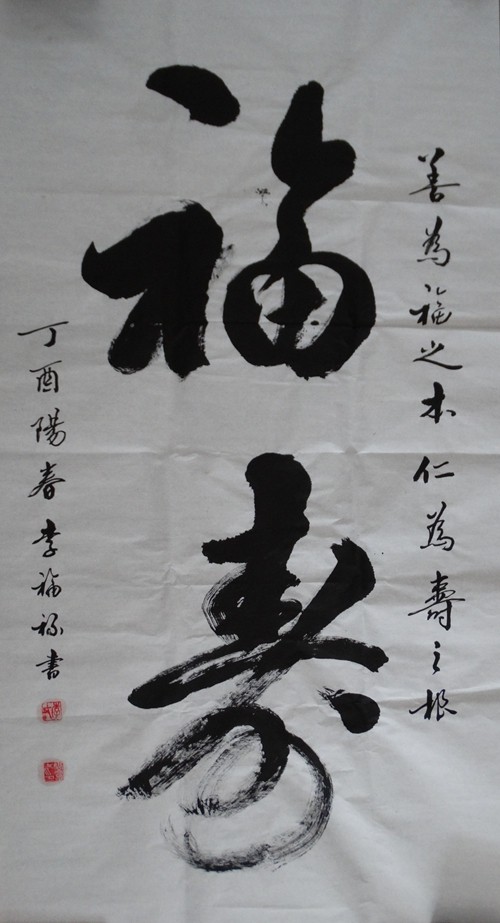 善為福之本仁為壽之根
福寿
丁酉陽春李福禄書